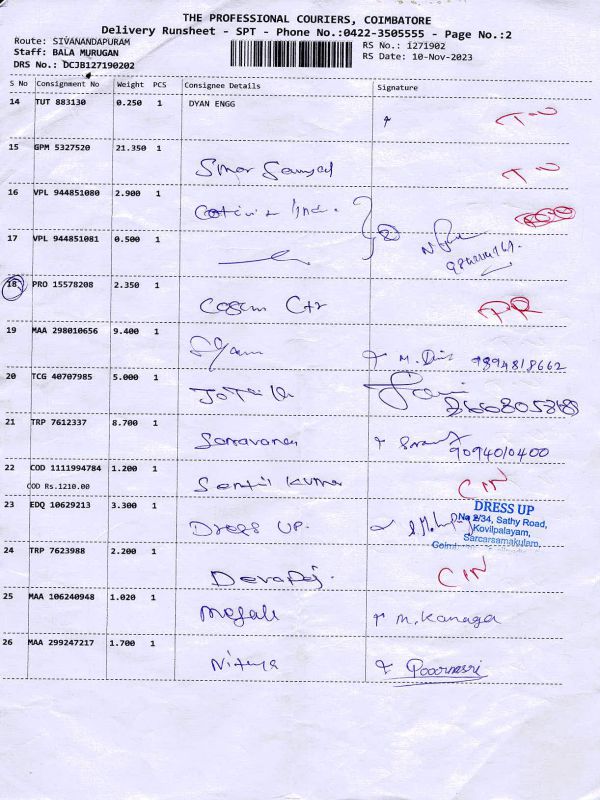 THE PROFESSIONAL COURIERS, COIMBATORE
Delivery Runsheet - SPT - Phone No.:0422-3505555 - Page No.:2
Route: SIVANANDAPURAM
RS No.: 1271902
Staff: BALA MURUGAN
RS Date: 10-Nov-2023
DRS No.: DCJB127190202
S No Consignment No Weight PCS Consignee Details Signature
14 TUT 883130 0.250 1 DYAN ENGG
15 GPM 5327520 21.350 1
16 VPL 944851080 2.900 1
17 VPL 944851081 0.500 1
18 PRO 15578208 2.350 1
19 MAA 298010656 9.400 1
9894818662
20 TCG 40707985 5.000 1
21 TRP 7612337 8.700 1 Saravanan
9094010400
22 COD 1111994784 1.200 1 Sentil Kumar CIN
COD Rs.1210.00
23 EDQ 10629213 3.300 1 Dress UP.
DRESS UP
No 2/34, Sathy Road,
Kovilpalayam,
Sarcarsamakulam,
24 TRP 7623988 2.200 1 Devaraj CIN
25 MAA 106240948 1.020 1 M. Kanaga
26 MAA 299247217 1.700 1 Nithya Poornasri